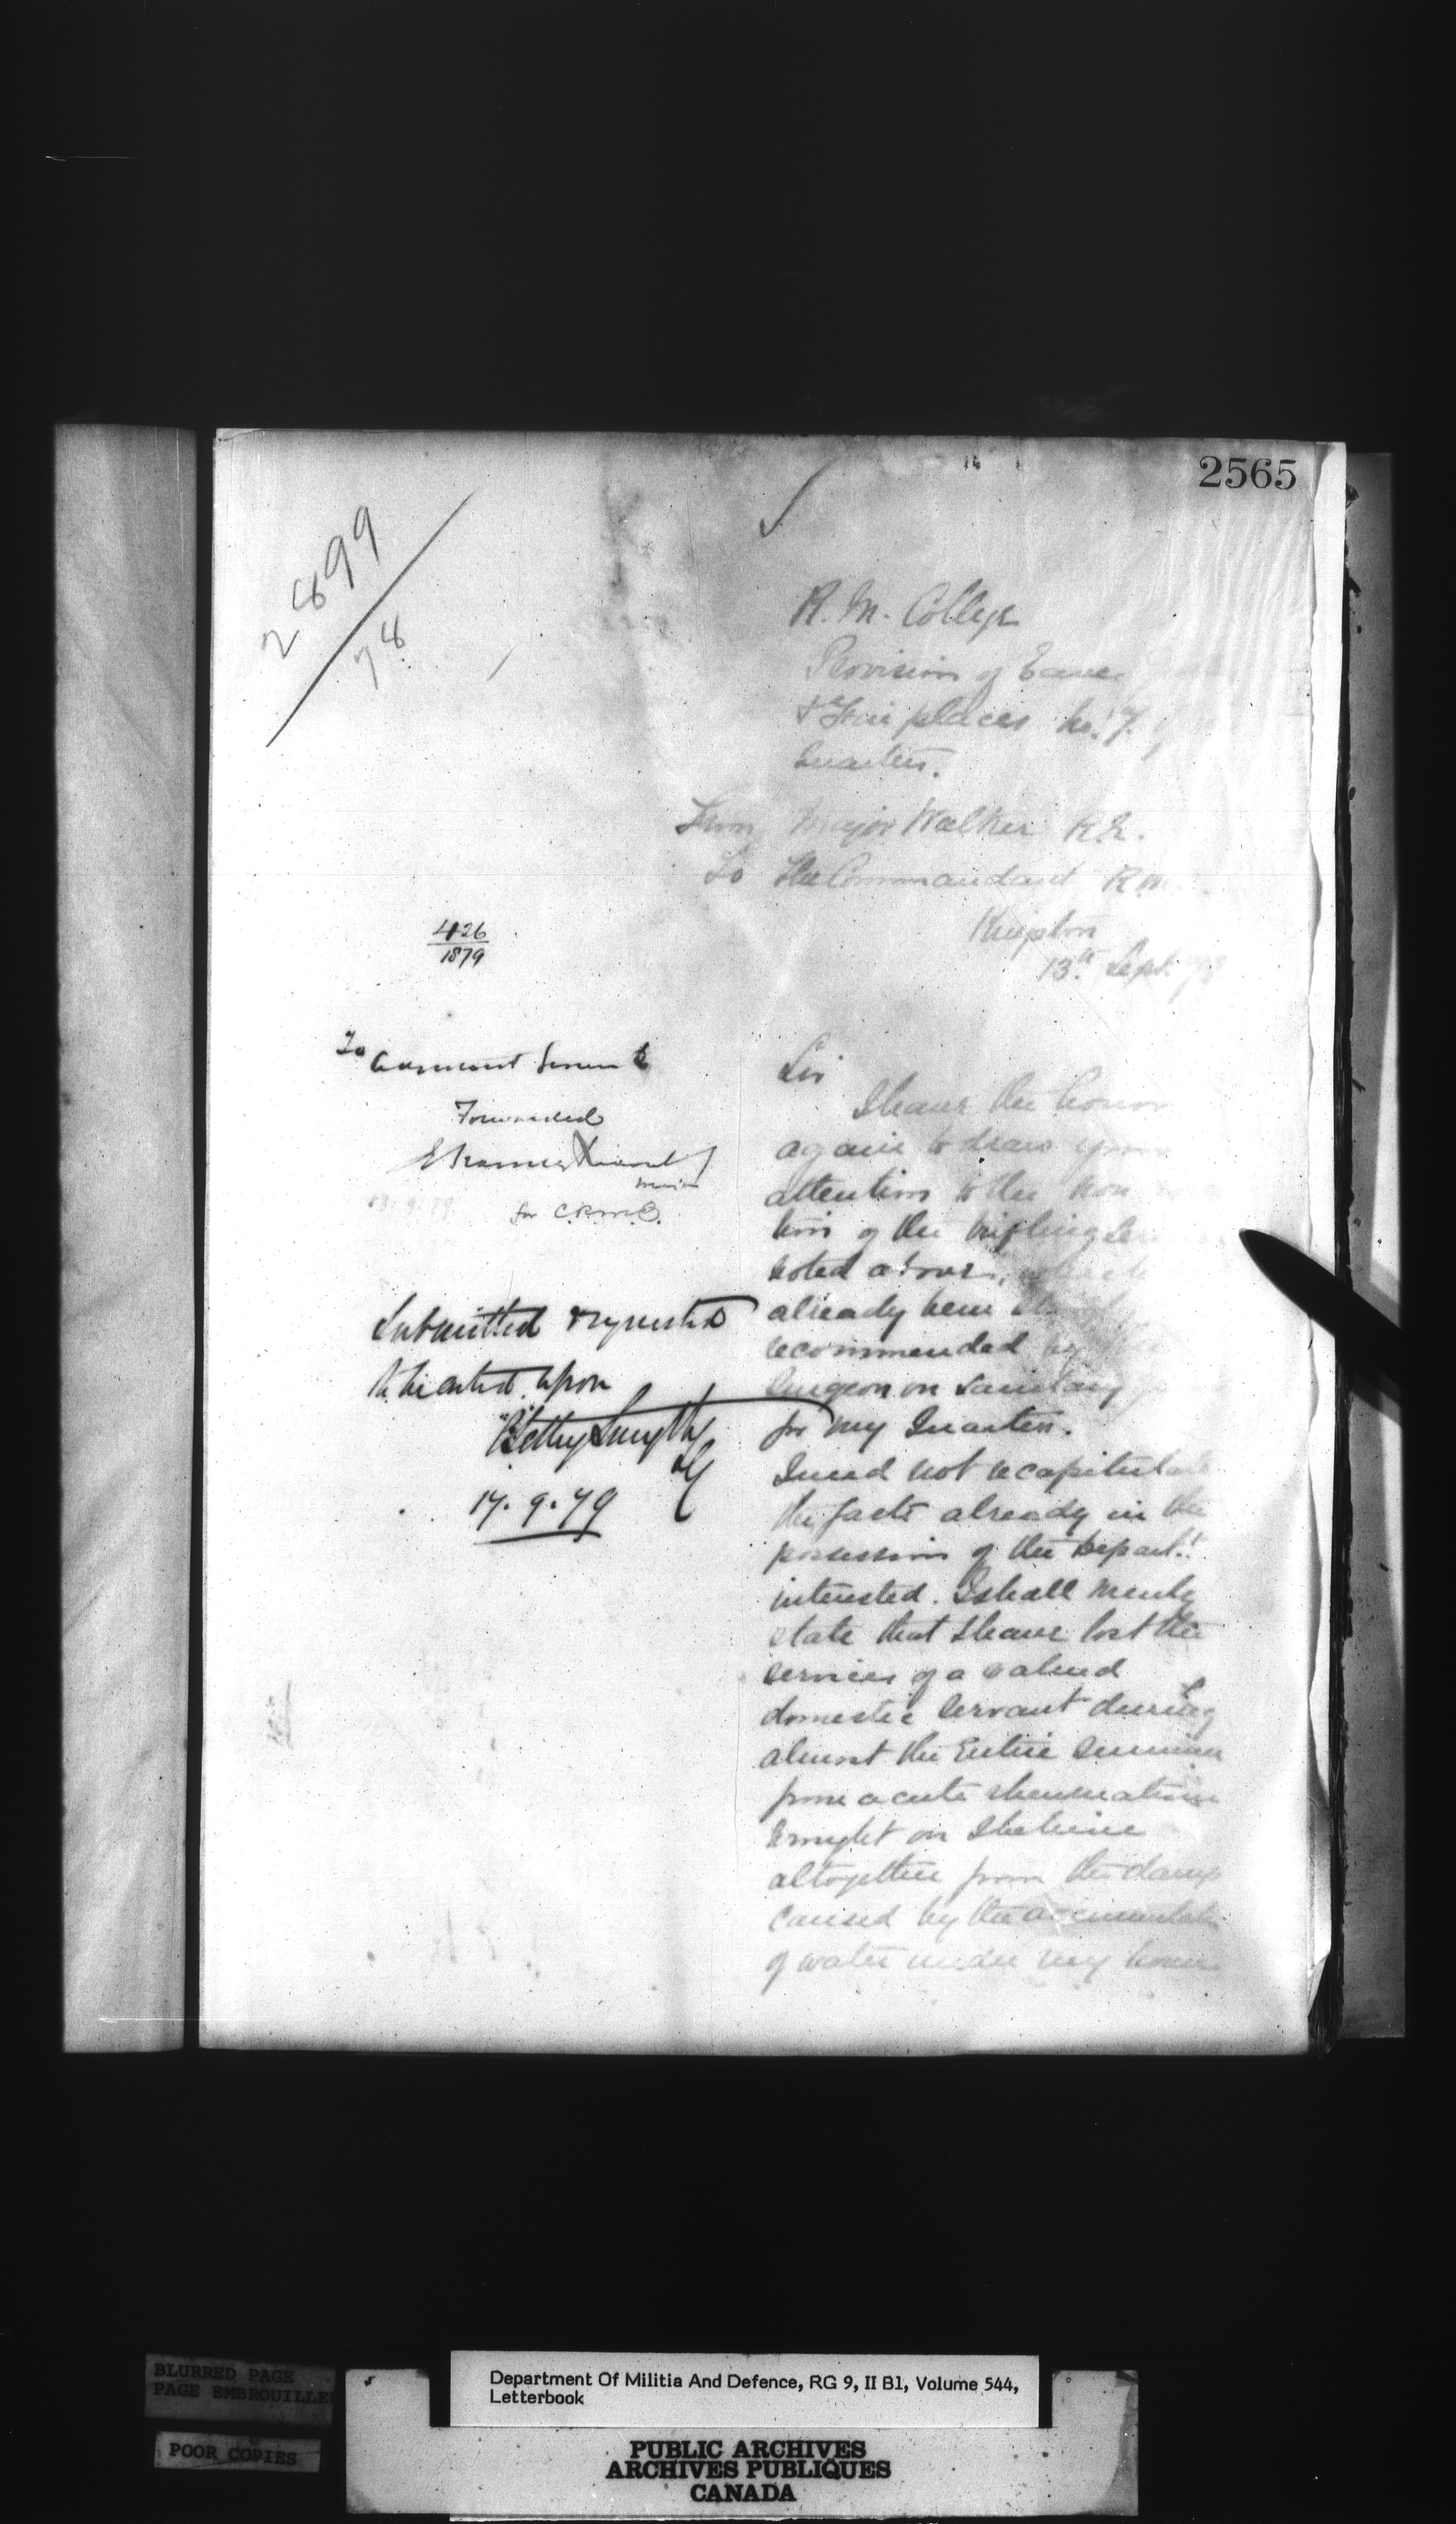 2565
2899
78
R. M. College
Provision of Eave
& Fire places No. 7.
Quarters.
From Major Walker R.E.
To The Commandant R M
Kingston
13th Sept. 79
426
1879
To
Forwarded
Major
for C.R.M.C.
13. 9. 79.
Submitted & requested
to be acted upon
Selby Smyth
LG
17. 9. 79
Sir
I have the honor
again to draw your
attention to the non
tion of the trifling
noted above, which
already been
recommended by the
Surgeon on Sanitary
for my Quarters.
I need not recapitulate
the facts already in the
possession of the Depart.t
interested. I shall merely
state that I have lost the
services of a valued
domestic servant during
almost the Entire Summer
from acute rheumatism
brought on I believe
altogether from the damp
caused by the accumulatn
of water under my house
BLURRED PAGE
PAGE EMBROUILLEE
POOR COPIES
Department Of Militia And Defence, RG 9, II B1, Volume 544,
Letterbook
PUBLIC ARCHIVES
ARCHIVES PUBLIQUES
CANADA